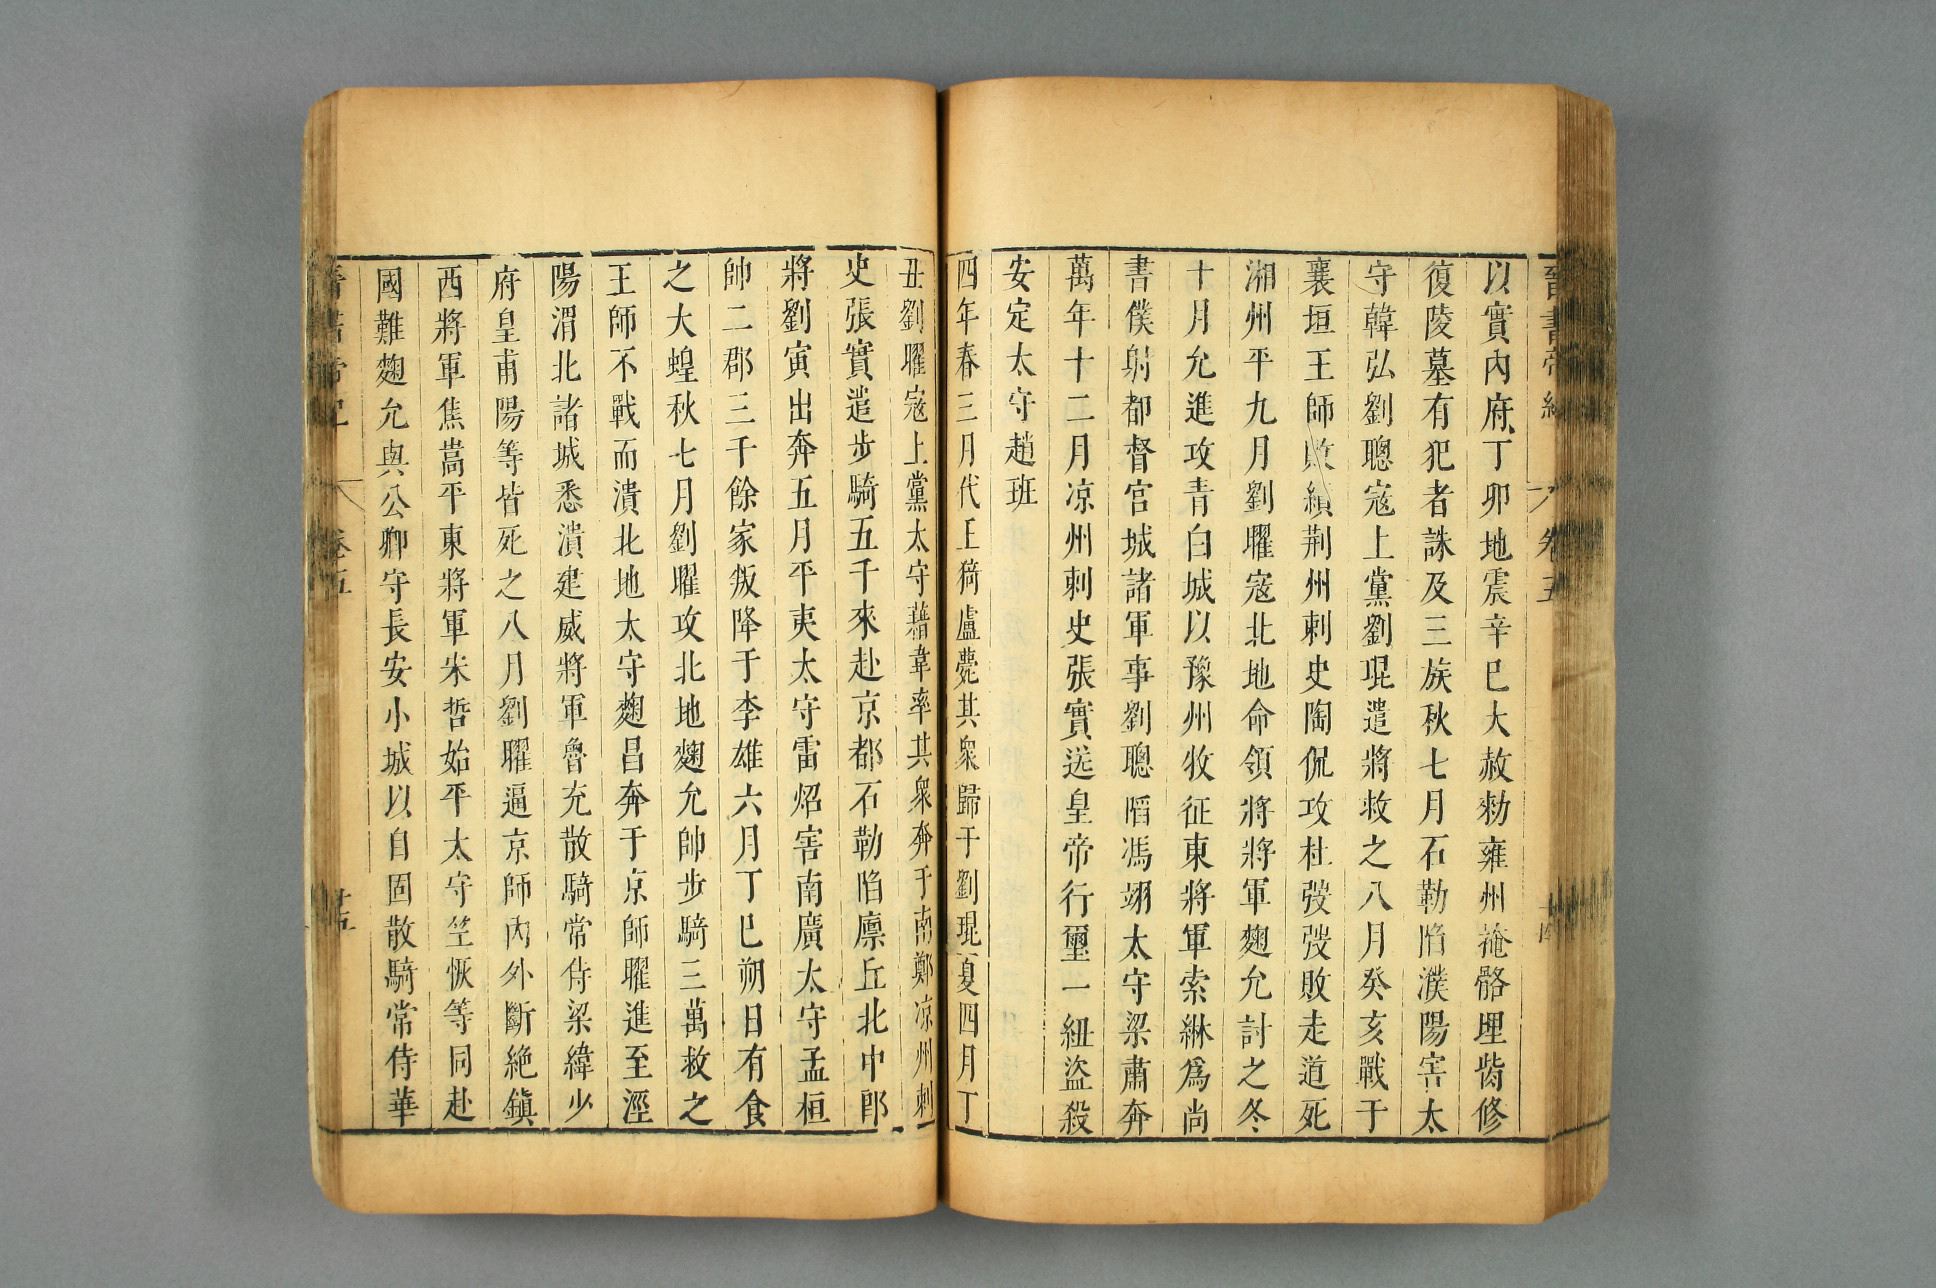 晉書帝紀 卷五
以實內府丁卯地震辛巳大赦勑雍州掩骼埋胔修
復陵墓有犯者誅及三族秋七月石勒陷濮陽害太
守韓弘劉聰寇上黨劉琨遣將救之八月癸亥戰于
襄垣王師敗績荆州刺史陶侃攻杜弢弢敗走道死
湘州平九月劉曜寇北地命領將將軍麴允討之冬
十月允進攻青白城以豫州牧征東將軍索綝爲尚
書僕射都督宮城諸軍事劉聰陷馮翊太守梁肅奔
萬年十二月凉州刺史張實送皇帝行璽一紐盜殺
安定太守趙班
四年春三月代王猗盧薨其衆歸于劉琨夏四月丁
丑劉曜寇上黨太守藉韋率其衆奔于南鄭凉州刺
史張實遣步騎五千來赴京都石勒陷廪丘北中郎
將劉寅出奔五月平夷太守雷炤害南廣太守孟桓
帥二郡三千餘家叛降于李雄六月丁巳朔日有食
之大蝗秋七月劉曜攻北地麴允帥步騎三萬救之
王師不戰而潰北地太守麴昌奔于京師曜進至涇
陽渭北諸城悉潰建威將軍魯充散騎常侍梁緯少
府皇甫陽等皆死之八月劉曜逼京師內外斷絶鎭
西將軍焦嵩平東將軍宋哲始平太守竺恢等同赴
國難麴允與公卿守長安小城以自固散騎常侍華
晉書帝紀 卷五 廿五